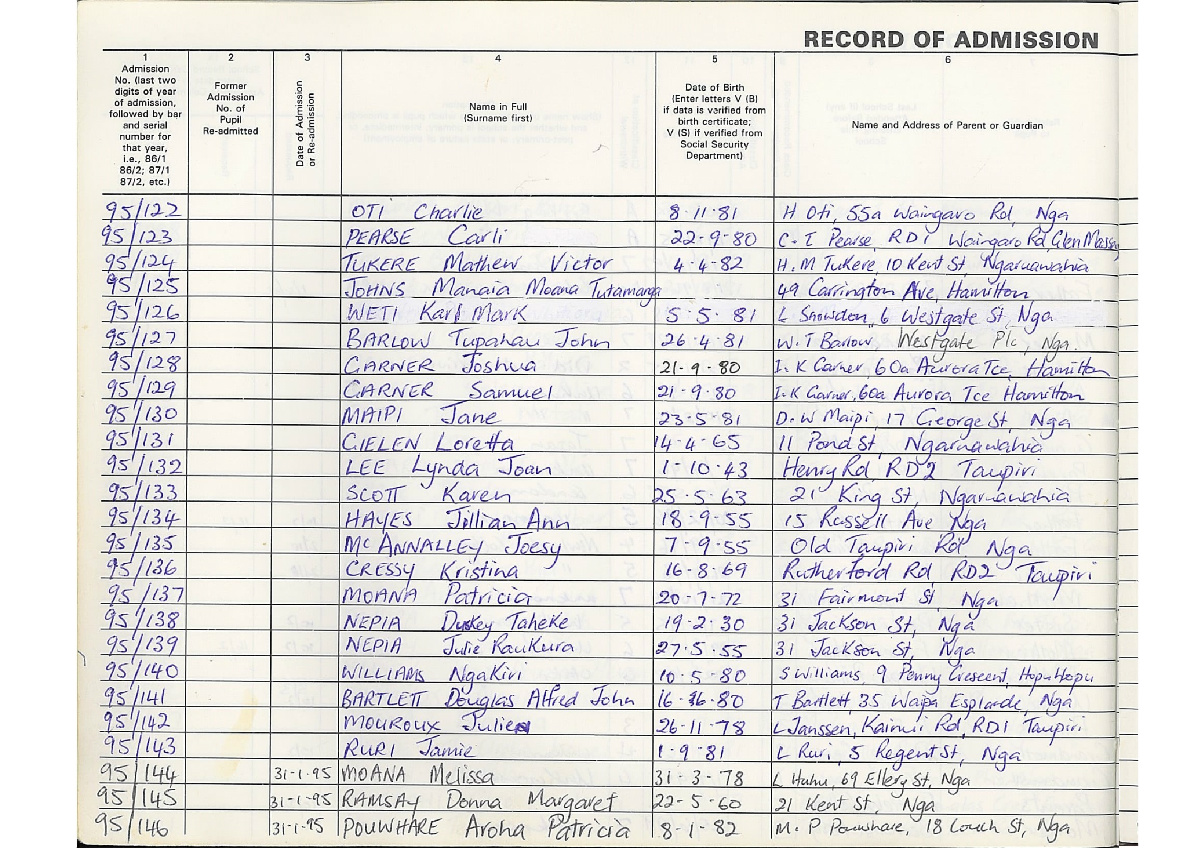 RECORD OF ADMISSION
1 2 3 4 5 6
Admission No. (last two digits of year of admission, followed by bar and serial number for that year, i.e., 86/1 86/2; 87/1 87/2, etc.)
Former Admission No. of Pupil Re-admitted
Date of Admission or Re-admission
Name in Full (Surname first)
Date of Birth (Enter letters V (B) if data is verified from birth certificate; V (S) if verified from Social Security Department)
Name and Address of Parent or Guardian
95/122 OTI Charlie 8-11-81 H Oti, 55a Waingaro Rd, Nga
95/123 PEARSE Carli 22-9-80 C-T Pearse, RD1 Waingaro Rd, Glen Massey
95/124 TUKERE Mathew Victor 4-4-82 H.M Tukere, 10 Kent St, Ngaruawahia
95/125 JOHNS Manaia Moana Tutamanga 49 Carrington Ave, Hamilton
95/126 WETI Karl Mark 5-5-81 L Snowden, 6 Westgate St, Nga
95/127 BARLOW Tupahau John 26-4-81 W.T Barlow, Westgate Plc, Nga.
95/128 GARNER Joshua 21-9-80 I-K Garner, 60a Aurora Tce, Hamilton
95/129 GARNER Samuel 21-9-80 I-K Garner, 60a Aurora Tce Hamilton
95/130 MAIPI Jane 23-5-81 D-W Maipi, 17 George St, Nga
95/131 GIELEN Loretta 14-4-65 11 Pond St, Ngaruawahia
95/132 LEE Lynda Joan 1-10-43 Henry Rd, RD2 Taupiri
95/133 SCOTT Karen 25-5-63 21 King St, Ngaruawahia
95/134 HAYES Jillian Ann 18-9-55 15 Russell Ave Nga
95/135 McANNALLEY Joesy 7-9-55 Old Taupiri Rd, Nga
95/136 CRESSY Kristina 16-8-69 Rutherford Rd RD2 Taupiri
95/137 MOANA Patricia 20-7-72 31 Fairmont St, Nga
95/138 NEPIA Duskey Taheke 19-2-30 31 Jackson St, Nga
95/139 NEPIA Julie Raukura 27-5-55 31 Jackson St, Nga
95/140 WILLIAMS NgaKiri 10-5-80 S Williams, 9 Penny Crescent, HopuHopu
95/141 BARTLETT Douglas Alfred John T Bartlett, 35 Waipa Esplande, Nga
95/142 MOUROUX Julien 26-11-78 L Janssen, Kaimui Rd, RD1 Taupiri
95/143 RURI Jamie 1-9-81 L Ruri, 5 Regent St, Nga
95/144 31-1-95 MOANA Melissa 31-3-78 L Huhu, 69 Ellery St, Nga
95/145 31-1-95 RAMSAY Donna Margaret 22-5-60 21 Kent St, Nga
95/146 31-1-95 POUWHARE Aroha Patricia 8-1-82 M-P Pouwhare, 18 Louch St, Nga